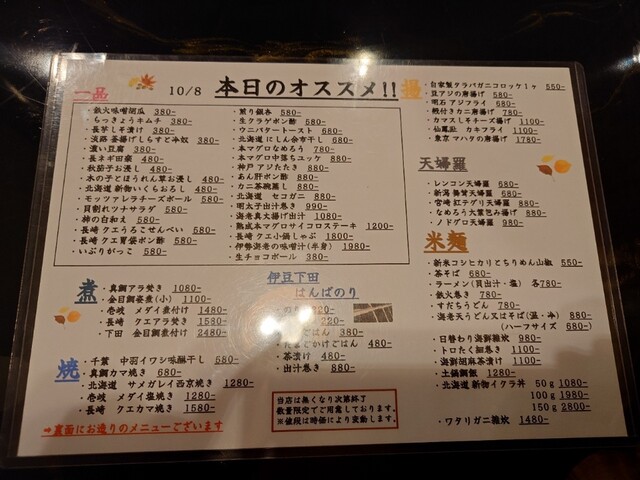 10/8 本日のオススメ!!
一品
・鉄火味噌胡瓜 380-
・らっきょうキムチ 380-
・長芋しそ漬け 380-
・淡路 釜揚げしらすと冷奴 380-
・濃い豆腐 380-
・長ネギ田楽 480-
・秋茄子お浸し 480-
・水の子とほうれん草お浸し 480-
・北海道 新物いくらおろし 480-
・モッツァレラチーズボール 580-
・貝割れツナサラダ 580-
・柿の白和え 580-
・長崎 クエうろこせんべい 580-
・長崎 クエ胃袋ポン酢 580-
・いぶりがっこ 580-
・煎り銀杏 580-
・生クラゲポン酢 580-
・ウニバタートースト 680-
・北海道 にしん余市干し 680-
・本マグロなめろう 780-
・本マグロ中落ちユッケ 880-
・神戸 アジたたき 880-
・あん肝ポン酢 880-
・カニ茶碗蒸し 880-
・北海道 セコガニ 880-
・明太子出汁巻き 990-
・海老真丈揚げ出汁 1080-
・熟成本マグロサイコロステーキ 1200-
・長崎 クエ小鍋しゃぶ 1800-
・伊勢海老の味噌汁(半身) 1980-
・生チョコボール 380-
煮
・真鯛アラ焚き 1080-
・金目鯛煮(小) 1100-
・壱岐 メダイ煮付け 1480-
・長崎 クエアラ焚き 1580-
・下田 金目鯛煮付け 2480-
焼
・千葉 中羽イワシ味醂干し 580-
・真鯛カマ焼き 680-
・北海道 サメガレイ西京焼き 1280-
・壱岐 メダイ塩焼き 1280-
・長崎 クエカマ焼き 1580-
⇒裏面にお造りのメニューございます
伊豆下田
はんばのり
220-
ごはん 380-
たまごかけごはん 480-
・茶漬け 480-
・出汁巻き 880-
当店は無くなり次第終了
数量限定でご用意しております。
※値段は時価により変動します。
揚
・自家製タラバガニコロッケ1ヶ 550-
・豆アジの唐揚げ 580-
・明石 アジフライ 680-
・殻付きカニ唐揚げ 780-
・カマスしそチーズ揚げ 1100-
・仙鳳趾 カキフライ 1100-
・東京 マハタの唐揚げ 1780-
天婦羅
・レンコン天婦羅 680-
・新潟 舞茸天婦羅 680-
・宮崎 紅テグリ天婦羅 880-
・なめろう大葉包み揚げ 880-
・ノドグロ天婦羅 980-
米麺
・新米コシヒカリとちりめん山椒 550-
・茶そば 680-
・ラーメン(貝出汁・塩) 各780-
・鉄火巻き 780-
・すだちうどん 780-
・海老天うどん又はそば(温・冷) 880-
(ハーフサイズ 680-)
・日替わり海鮮雑炊 980-
・トロたく細巻き 1100-
・海鮮胡麻茶漬け 1100-
・土鍋鯛飯 1280-
・北海道 新物イクラ丼 50g 1080-
100g 1980-
150g 2800-
・ワタリガニ雑炊 1480-